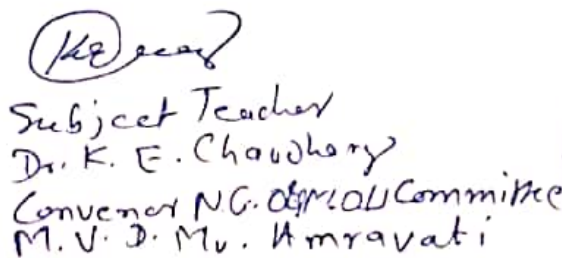 Subject Teacher
Dr. K. E. Chaudhary
Convenor N.G. Committee
M. V. D. Mv. Amravati